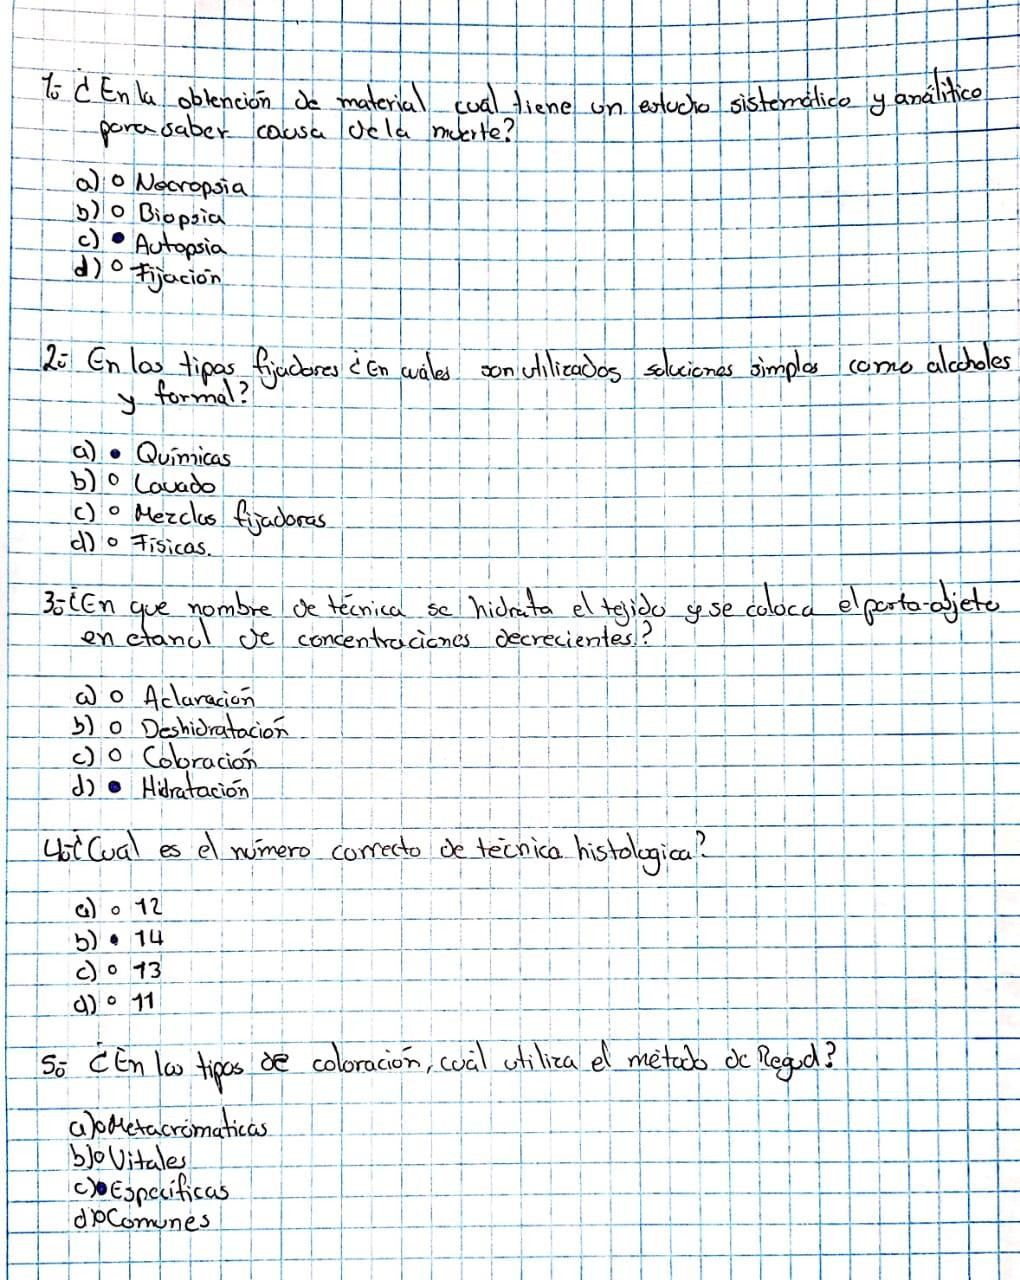 1.- ¿En la obtención de material cuál tiene un estudio sistemático y análitico
para saber causa de la muerte?
a) o Necropsia
b) o Biopsia
c) • Autopsia
d) o Fijación
2.- En los tipos fijadores ¿En cuáles son utilizados soluciones simples como alcoholes
y formal?
a) • Químicas
b) o Lavado
c) o Mezclas fijadoras
d) o Físicas.
3.- ¿En que nombre de técnica se hidrata el tejido y se coloca el porta-objeto
en etanol de concentraciones decrecientes.?
a) o Aclaración
b) o Deshidratación
c) o Coloración
d) • Hidratación
4.- ¿Cuál es el número correcto de técnica histologica?
a) o 12
b) • 14
c) o 13
d) o 11
5.- ¿En los tipos de coloración, cuál utiliza el método de Regud?
a) o Metacrómaticas
b) o Vitales
c) • Específicas
d) o Comunes